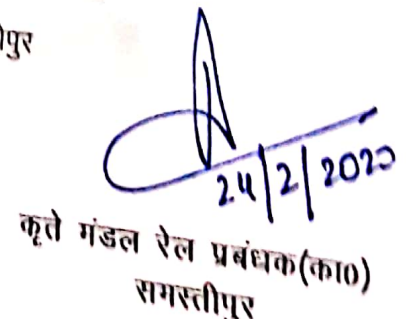 ीपुर
24/2/2020
कृते मंडल रेल प्रबंधक(का0)
समस्तीपुर